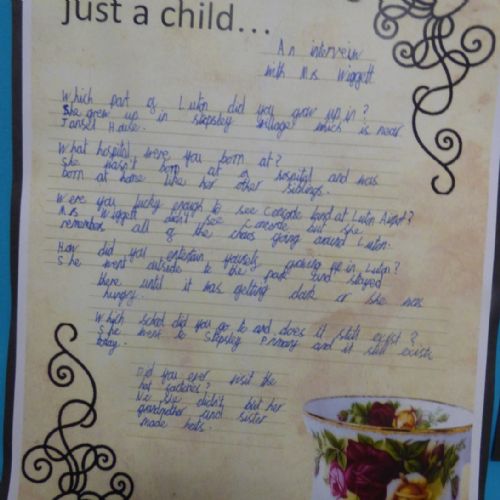 just a child...
An interveiw
with Mrs Wiggett
Which part of Luton did you grow up in?
She grew up in stopsley village which is near
Jansel House.
What hospital were you born at?
She wasn't born at a hospital and was
born at home like her other siblings.
Were you lucky enough to see Concorde land at Luton Airport?
Mrs Wiggett didn't see Concorde but she
remembers all of the chaos going around Luton.
How did you entertain yourself growing up in Luton?
She went outside to the park and stayed
there until it was getting dark or she was
hungry.
Which school did you go to and does it still exist?
She went to Stopsley Primary and it still exists
today.
Did you ever visit the
hat factories?
No she didn't but her
grandmother and sister
made hats.